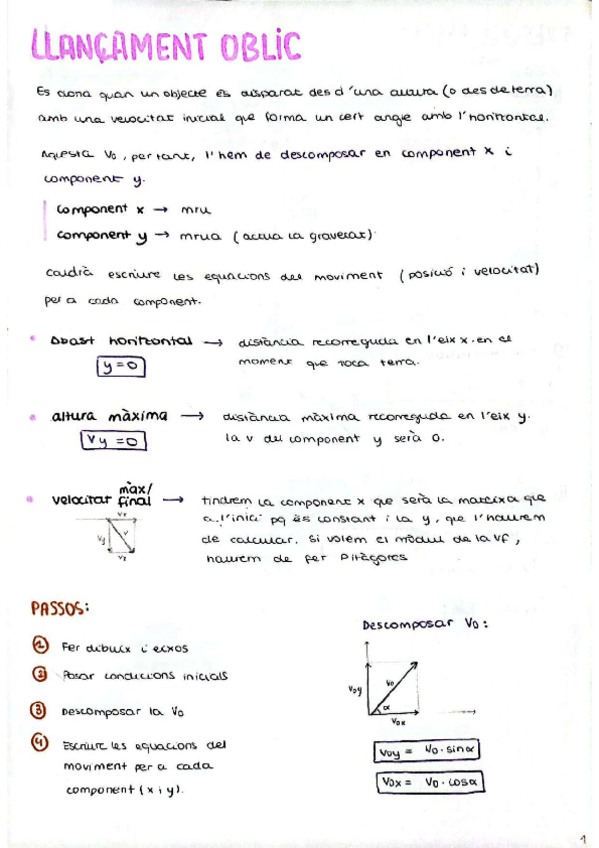 LLANÇAMENT OBLIC
Es dona quan un objecte és disparat des d'una altura (o des de terra)
amb una velocitat inicial que forma un cert angle amb l'horitzontal.
Aquesta V₀, per tant, l'hem de descomposar en component x i
component y.
component x → mru
component y → mrua (actua la gravetat)
Caldrà escriure les equacions del moviment (posició i velocitat)
per a cada component.
• Abast horitzontal → distància recorreguda en l'eix x en el
y=0
moment que toca terra.
• altura màxima → distància màxima recorreguda en l'eix y.
Vy =0
la v del component y serà 0.
• velocitat màx/final → tindrem la component x que serà la mateixa que
a l'inici pq és constant i la y, que l'haurem
de calcular. Si volem el mòdul de la Vf,
haurem de fer Pitàgores
Vx
Vy
V
Vx
PASSOS:
1 Fer dibuix i eixos
2 Posar condicions inicials
3 Descomposar la V₀
4 Escriure les equacions del
moviment per a cada
component (x i y).
Descomposar V₀:
V₀y
V₀
α
V₀x
V₀y = V₀·sinα
V₀x = V₀·cosα
1